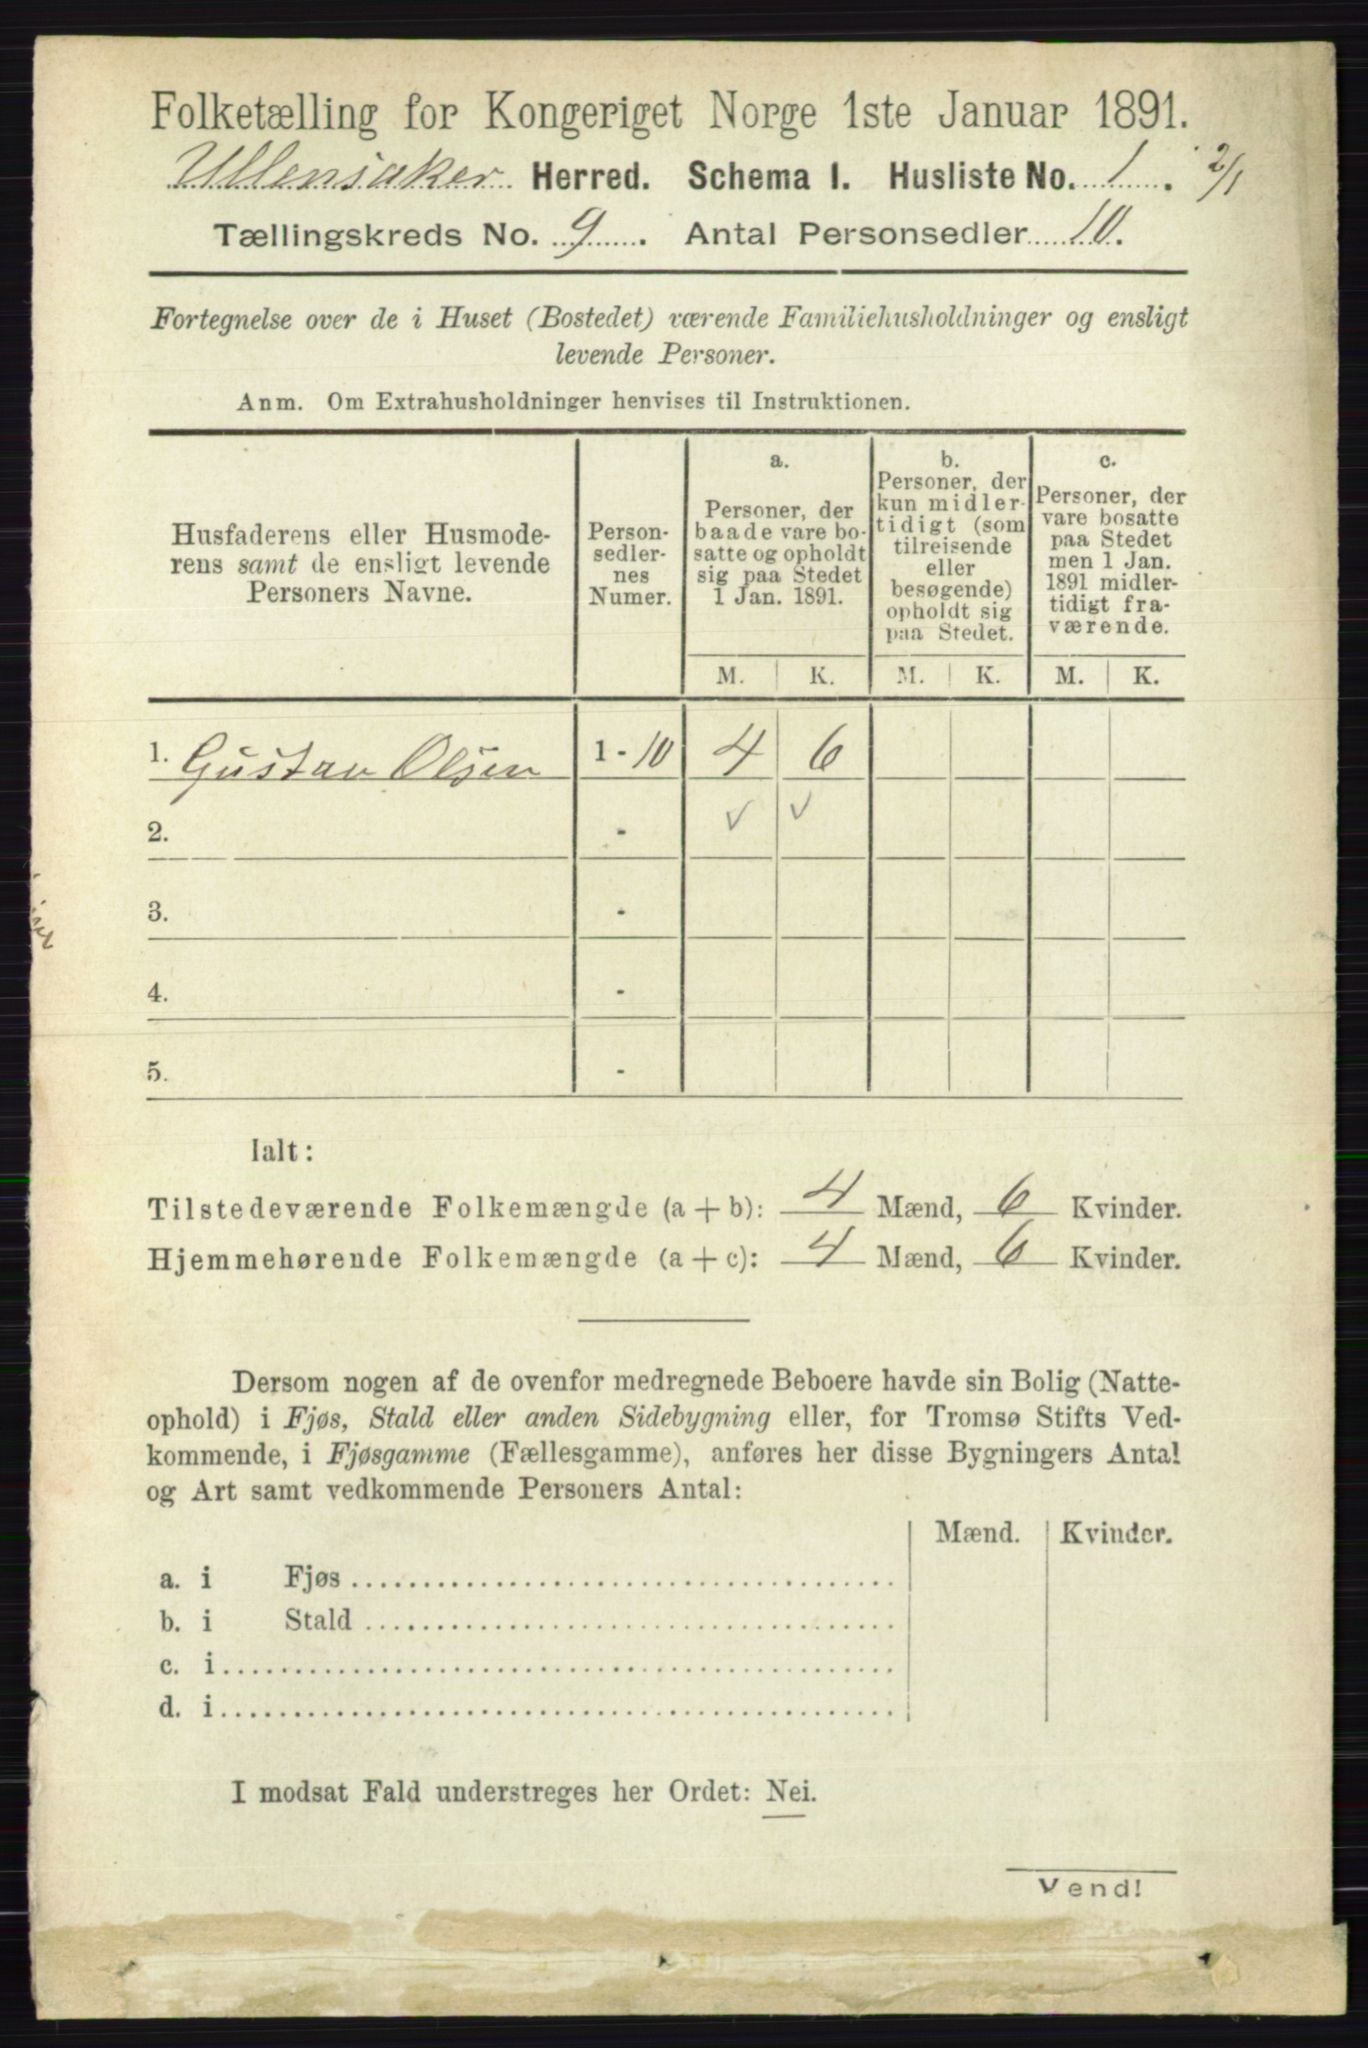 Folketælling for Kongeriget Norge 1ste Januar 1891.
Ullensaker Herred. Schema I. Husliste No. 1. 2/1
Tællingskreds No. 9. Antal Personsedler 10.
Fortegnelse over de i Huset (Bostedet) værende Familiehusholdninger og ensligt
levende Personer.
Anm. Om Extrahusholdninger henvises til Instruktionen.
Husfaderens eller Husmode-
rens samt de ensligt levende
Personers Navne.
Person-
sedler-
nes
Numer.
a.
Personer, der
baade vare bo-
satte og opholdt
sig paa Stedet
1 Jan. 1891.
b.
Personer, der
kun midler-
tidigt (som
tilreisende
eller
besøgende)
opholdt sig
paa Stedet.
c.
Personer, der
vare bosatte
paa Stedet
men 1 Jan.
1891 midler-
tidigt fra-
værende.
M. K. M. K. M. K.
1. Gustav Olsen 1 - 10 4 6
2. - ✓ ✓
3. -
4. -
5. -
Ialt:
Tilstedeværende Folkemængde (a + b): 4 Mænd, 6 Kvinder.
Hjemmehørende Folkemængde (a + c): 4 Mænd, 6 Kvinder.
Dersom nogen af de ovenfor medregnede Beboere havde sin Bolig (Natte-
ophold) i Fjøs, Stald eller anden Sidebygning eller, for Tromsø Stifts Ved-
kommende, i Fjøsgamme (Fællesgamme), anføres her disse Bygningers Antal
og Art samt vedkommende Personers Antal:
Mænd. Kvinder.
a. i Fjøs
b. i Stald
c. i
d. i
I modsat Fald understreges her Ordet: Nei.
Vend!